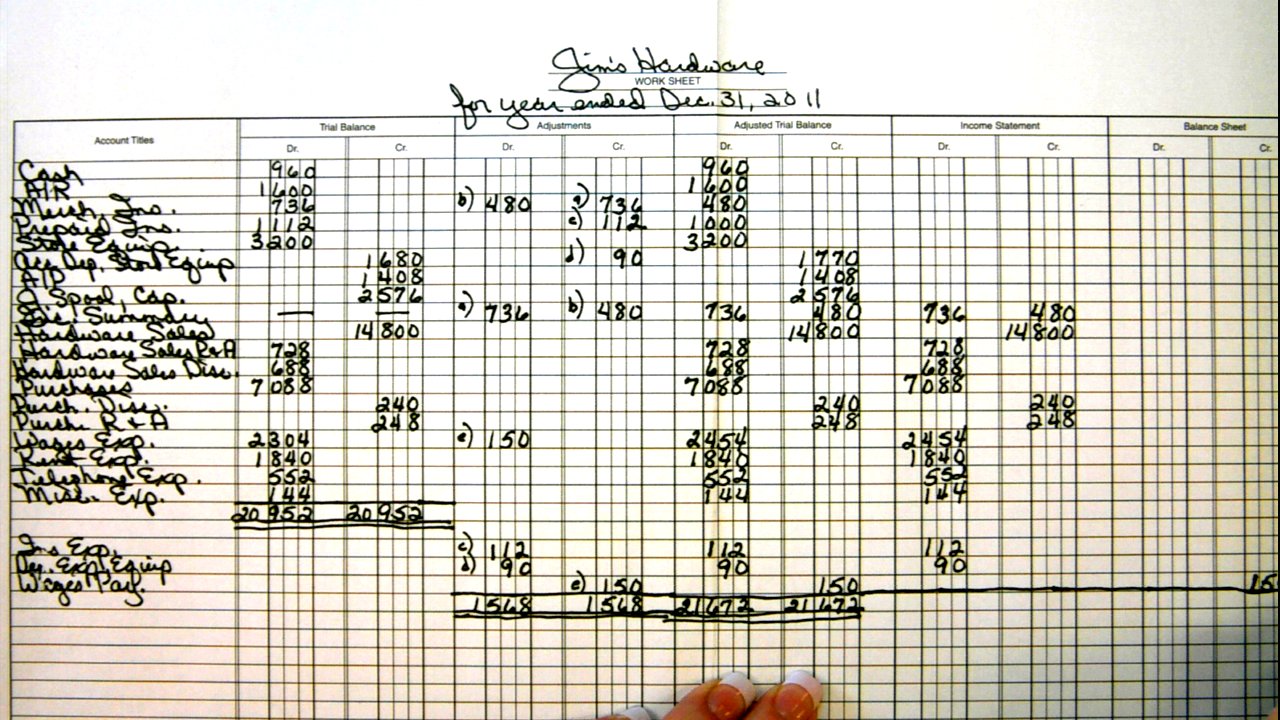 Jim's Hardware
WORK SHEET
for year ended Dec. 31, 2011
Account Titles Trial Balance Adjustments Adjusted Trial Balance Income Statement Balance Sheet
Dr. Cr. Dr. Cr. Dr. Cr. Dr. Cr. Cr.
Cash 960 960
A/R 1600 1600
Merch. Inv. 736 b) 480 a) 736 480
Prepaid Ins. 1112 c) 112 1000
Store Equip. 3200 3200
Acc. Dep. Store Equip 1680 d) 90 1770
A/P 1408 1408
J. Spool, Cap. 2576 2576
Inc. Summary — — a) 736 b) 480 736 480 736 480
Hardware Sales 14800 14800 14800
Hardware Sales R+A 728 728 728
Hardware Sales Disc. 688 688 688
Purchases 7088 7088 7088
Purch. Disc. 240 240 240
Purch. R+A 248 248 248
Wages Exp. 2304 e) 150 2454 2454
Rent Exp. 1840 1840 1840
Telephone Exp. 552 552 552
Misc. Exp. 144 144 144
20952 20952
Ins Exp. c) 112 112 112
Dep. Exp. Equip d) 90 90 90
Wages Pay. e) 150 150 15
1568 1568 21672 21672